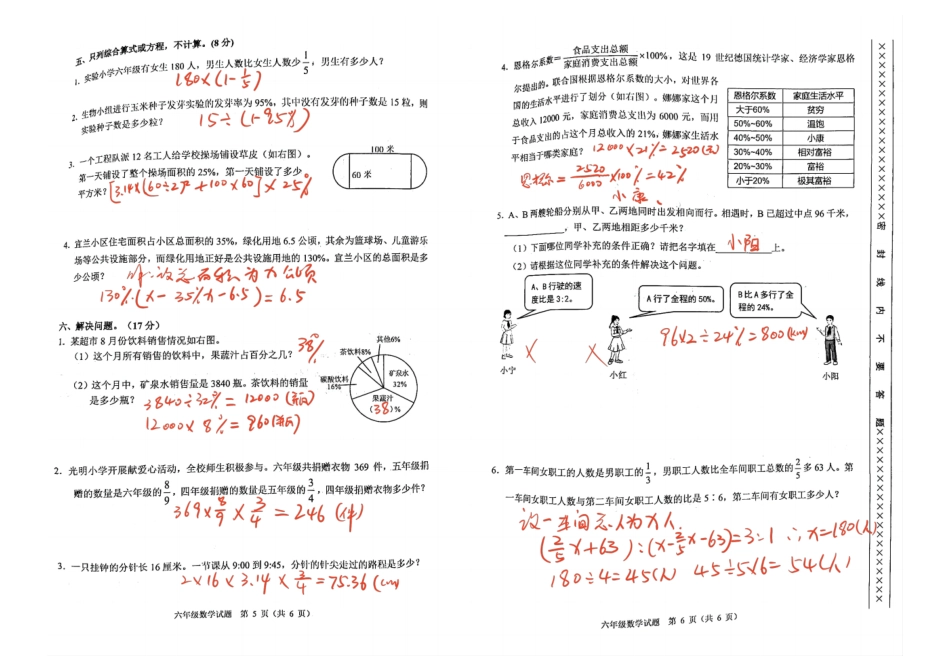 五、只列综合算式或方程，不计算。(8 分)
1. 实验小学六年级有女生 180 人，男生人数比女生人数少 1/5，男生有多少人？
180×(1-1/5)
2. 生物小组进行玉米种子发芽实验的发芽率为 95%，其中没有发芽的种子数是 15 粒，则
实验种子数是多少粒？
15÷(1-95%)
3. 一个工程队派 12 名工人给学校操场铺设草皮（如右图）。
第一天铺设了整个操场面积的 25%，第一天铺设了多少
平方米？
[3.14×(60÷2)²+100×60]×25%
100 米
60 米
4. 宜兰小区住宅面积占小区总面积的 35%，绿化用地 6.5 公顷，其余为篮球场、儿童游乐
场等公共设施部分，而绿化用地正好是公共设施用地的 130%。宜兰小区的总面积是多
少公顷？
解：设总面积为x公顷
130%(x-35%x-6.5)=6.5
六、解决问题。（17 分）
1. 某超市 8 月份饮料销售情况如右图。
（1）这个月所有销售的饮料中，果蔬汁占百分之几？
38%
（2）这个月中，矿泉水销售量是 3840 瓶。茶饮料的销量
是多少瓶？
3840÷32%=12000(瓶)
12000×8%=960(瓶)
其他6%
茶饮料8%
矿泉水
32%
碳酸饮料
16%
果蔬汁
（38）%
2. 光明小学开展献爱心活动，全校师生积极参与。六年级共捐赠衣物 369 件，五年级捐
赠的数量是六年级的 8/9，四年级捐赠的数量是五年级的 3/4，四年级捐赠衣物多少件？
369×8/9×3/4=246(件)
3. 一只挂钟的分针长 16 厘米。一节课从 9:00 到 9:45，分针的针尖走过的路程是多少？
2×16×3.14×3/4=75.36(cm)
六年级数学试题 第 5 页（共 6 页）
4. 恩格尔系数=食品支出总额/家庭消费支出总额×100%，这是 19 世纪德国统计学家、经济学家恩格
尔提出的。联合国根据恩格尔系数的大小，对世界各
国的生活水平进行了划分（如右图）。娜娜家这个月
总收入 12000 元，家庭消费总支出为 6000 元，而用
于食品支出的占这个月总收入的 21%，娜娜家生活水
平相当于哪类家庭？
12000×21%=2520(元)
恩格尔=2520/6000×100%=42%
小康、
恩格尔系数 家庭生活水平
大于60% 贫穷
50%~60% 温饱
40%~50% 小康
30%~40% 相对富裕
20%~30% 富裕
小于20% 极其富裕
5. A、B 两艘轮船分别从甲、乙两地同时出发相向而行。相遇时，B 已超过中点 96 千米，
＿＿＿＿＿，甲、乙两地相距多少千米？
（1）下面哪位同学补充的条件正确？请把名字填在 小阳 上。
（2）请根据这位同学补充的条件解决这个问题。
A、B 行驶的速
度比是 3:2。
A 行了全程的 50%。
B比 A 多行了全
程的 24%。
×
×
96×2÷24%=800(km)
小宁
小红
小阳
6. 第一车间女职工的人数是男职工的 1/3，男职工人数比全车间职工总数的 2/5 多 63 人。第
一车间女职工人数与第二车间女职工人数的比是 5∶6，第二车间有女职工多少人？
设一车间总人为x人
(2/5x+63):(x-2/5x-63)=3:1 ∴x=180(人)
180÷4=45(人) 45÷5×6=54(人)
六年级数学试题 第 6 页（共 6 页）
××××××××××××××××密 封 线 内 不 要 答 题××××××××××××××××